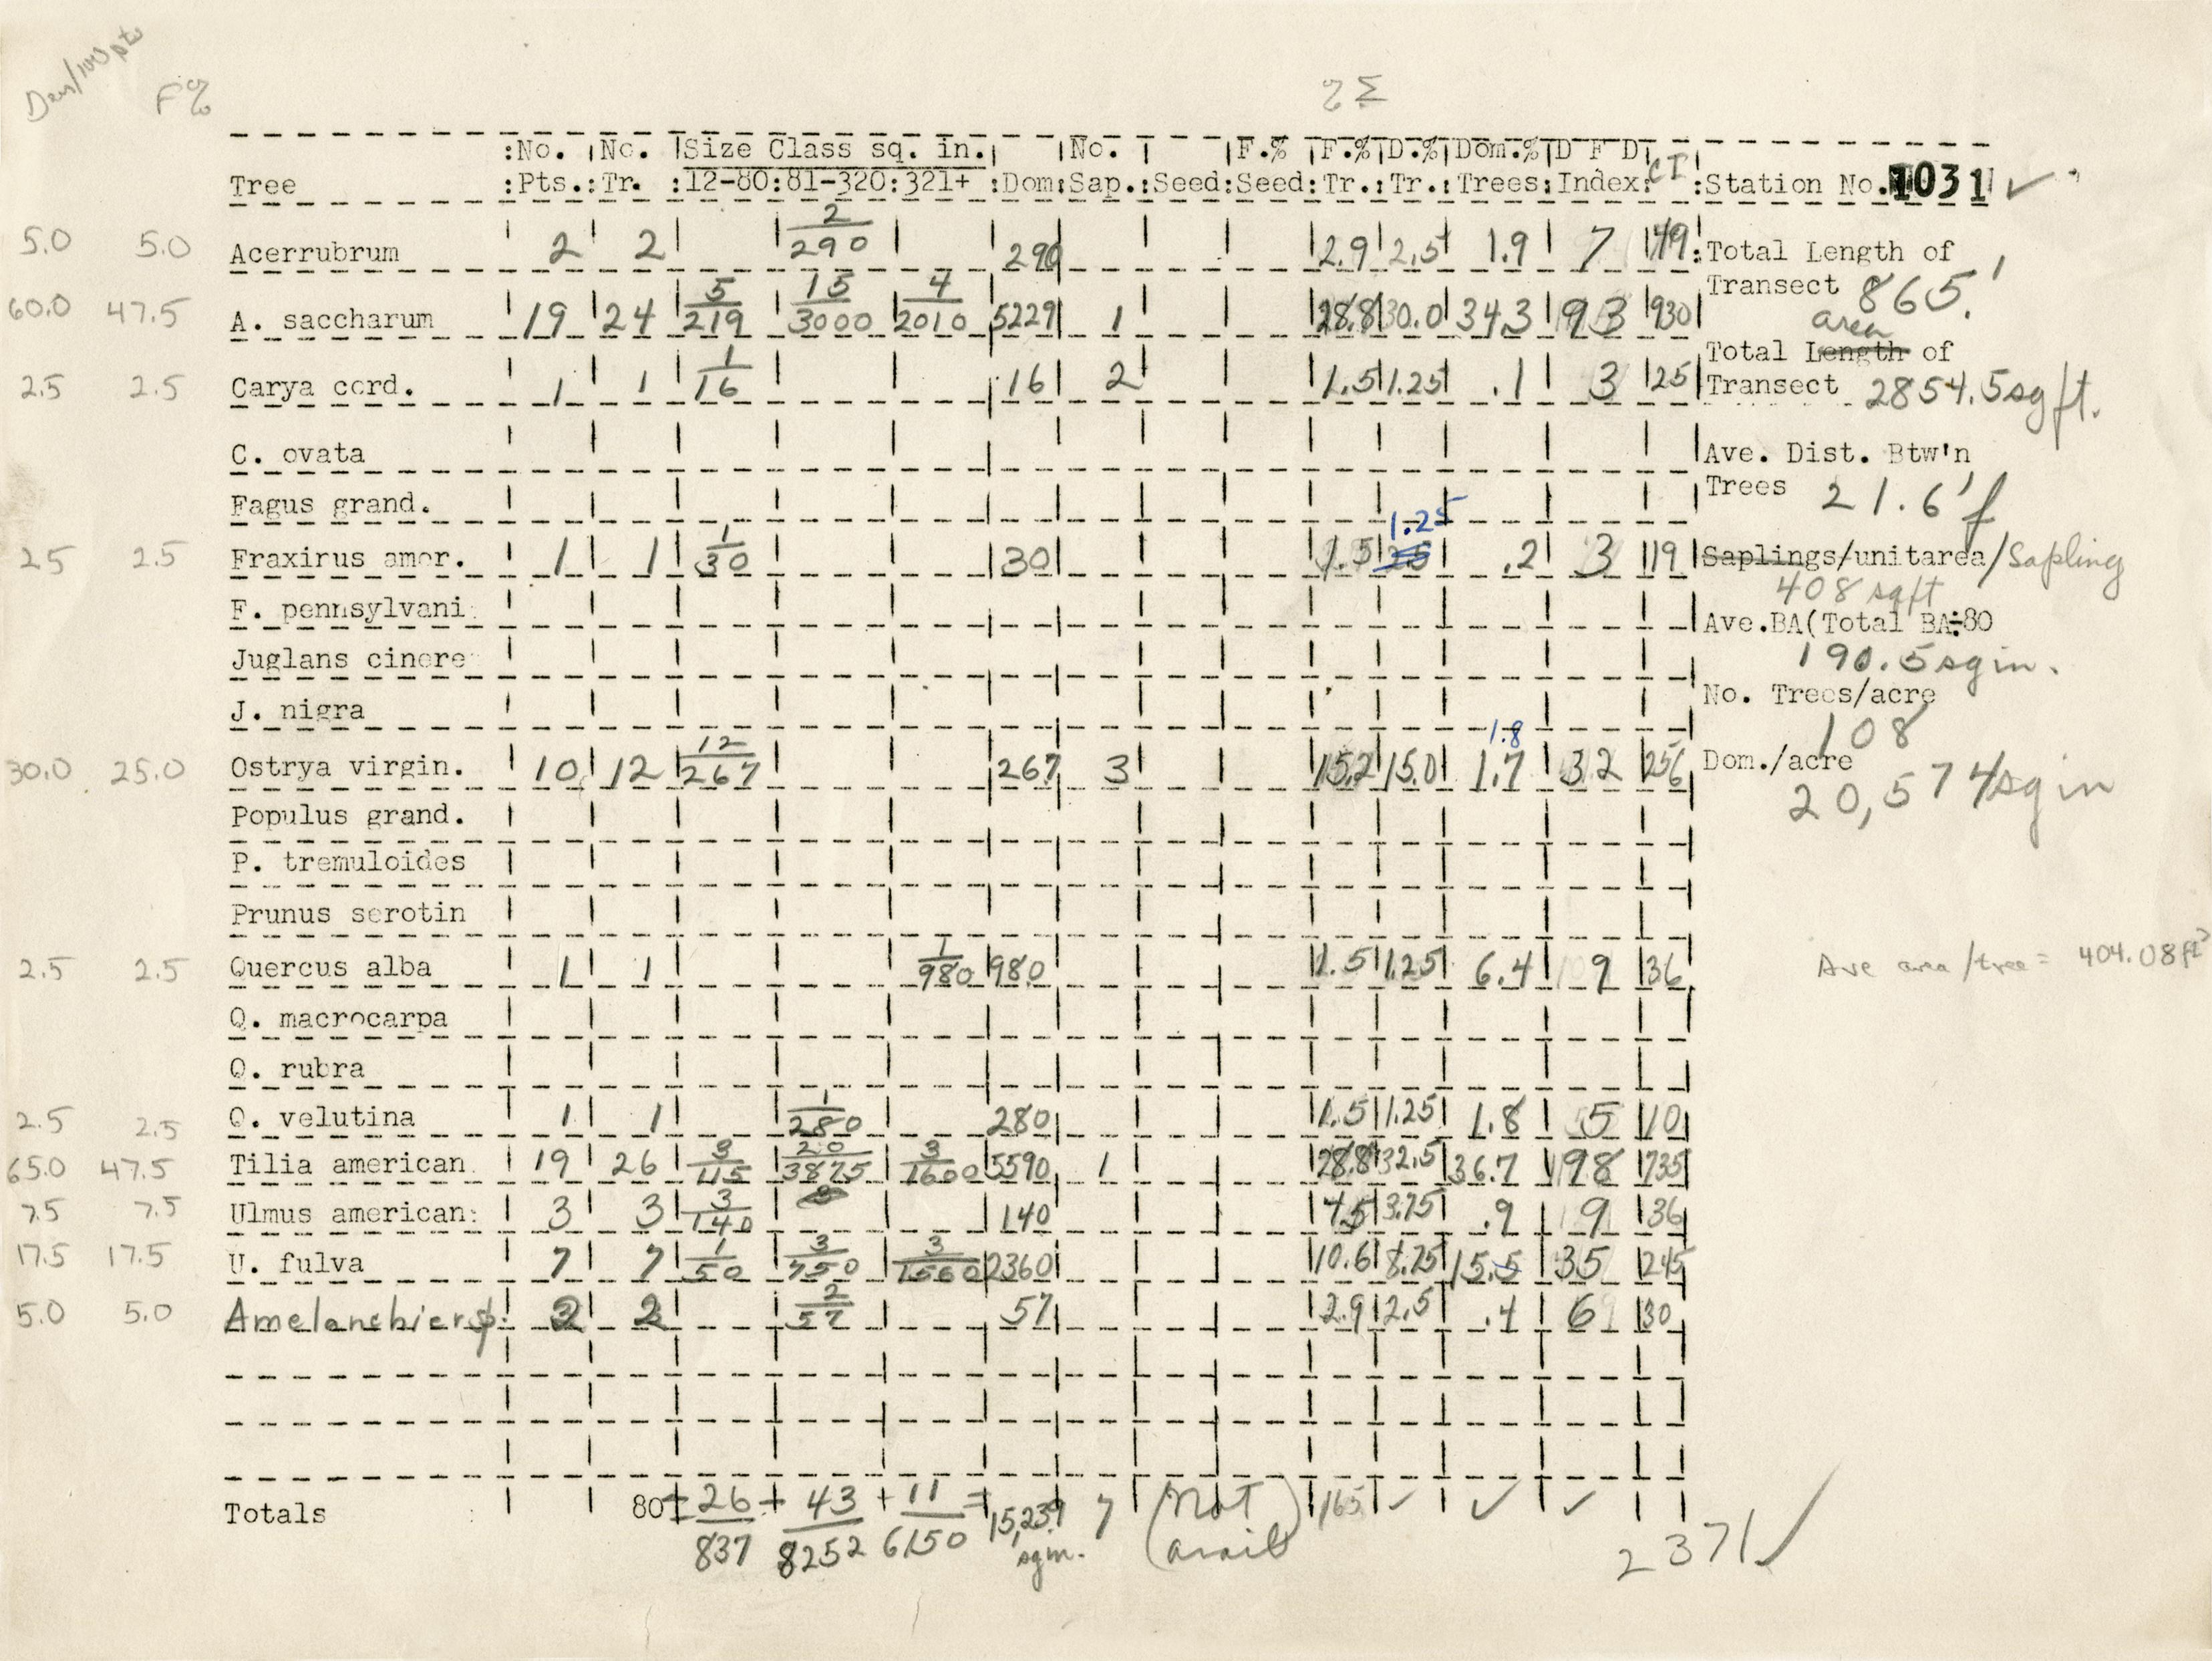 Den/100 pts F% % Σ
:No. No. Size Class sq. in. No. F.% F.% D.% Dom.% D F D CI
Tree :Pts.: Tr. :12-80:81-320:321+ :Dom:Sap.:Seed:Seed: Tr.: Tr.: Trees: Index: :Station No. 1031 ✓
5.0 5.0 Acerrubrum 2 2 2/290 290 2.9 2.5 1.9 7 49 :Total Length of
Transect 865.'
60.0 47.5 A. saccharum 19 24 5/219 15/3000 4/2010 5229 1 28.8 30.0 34.3 93 930
area
Total Length of
2.5 2.5 Carya cord. 1 1 1/16 16 2 1.5 1.25 .1 3 25 Transect 2854.5 sq ft.
C. ovata Ave. Dist. Btw'n
Fagus grand. Trees 21.6'
1.25
25 2.5 Fraxirus amer. 1 1 1/30 30 1.5 .2 3 19 Saplings/unitarea/Sapling
408 sq ft
F. pennsylvani Ave.BA(Total BA÷80
Juglans cinere 190.5 sq in.
J. nigra No. Trees/acre
108
1.8
30.0 25.0 Ostrya virgin. 10 12 12/267 267 3 15.2 15.0 1.7 32 256 Dom./acre
20,574 sq in
Populus grand.
P. tremuloides
Prunus serotin
2.5 2.5 Quercus alba 1 1 1/980 980 1.5 1.25 6.4 9 36 Ave area/tree = 404.08 ft²
Q. macrocarpa
Q. rubra
2.5 2.5 Q. velutina 1 1 1/280 280 1.5 1.25 1.8 5 10
65.0 47.5 Tilia american 19 26 3/115 20/3875 3/1600 5590 1 28.8 32.5 36.7 98 735
7.5 7.5 Ulmus american: 3 3 3/140 140 4.5 3.75 .9 9 36
17.5 17.5 U. fulva 7 7 1/50 3/750 3/1560 2360 10.6 8.75 15.5 35 245
5.0 5.0 Amelanchier sp. 2 2 2/57 57 2.9 2.5 .4 6 30
Totals : 80 = 26/837 + 43/8252 + 11/6150 = 15,239 sq in. 7 (Not avail) 165 ✓ ✓ ✓ 2371 ✓